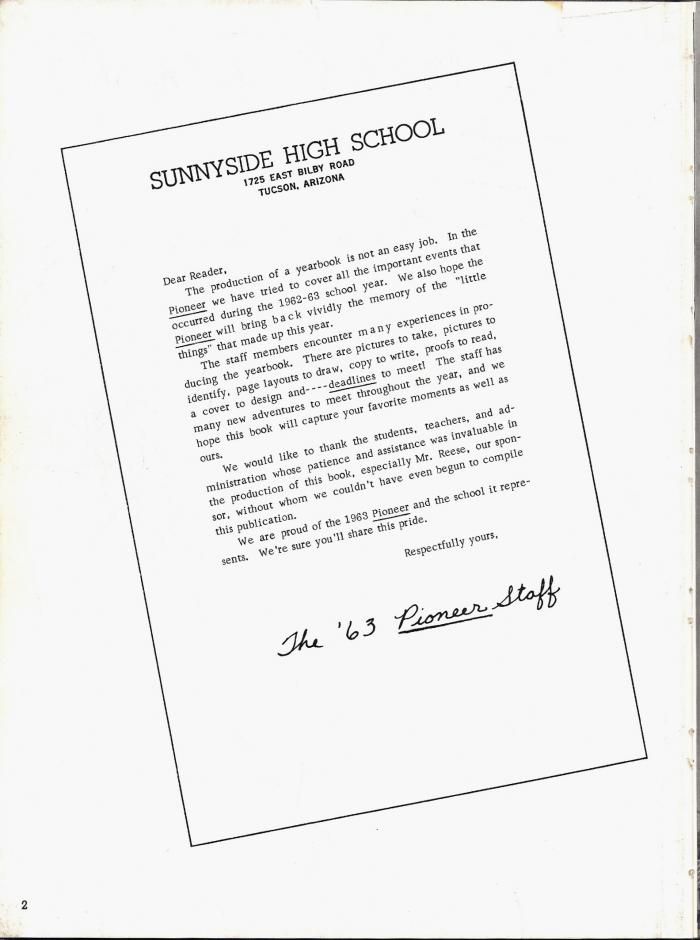 SUNNYSIDE HIGH SCHOOL
1725 EAST BILBY ROAD
TUCSON, ARIZONA
Dear Reader,
The production of a yearbook is not an easy job. In the
Pioneer we have tried to cover all the important events that
occurred during the 1962-63 school year. We also hope the
Pioneer will bring back vividly the memory of the "little
things" that made up this year.
The staff members encounter many experiences in pro-
ducing the yearbook. There are pictures to take, pictures to
identify, page layouts to draw, copy to write, proofs to read,
a cover to design and----deadlines to meet! The staff has
many new adventures to meet throughout the year, and we
hope this book will capture your favorite moments as well as
ours.
We would like to thank the students, teachers, and ad-
ministration whose patience and assistance was invaluable in
the production of this book, especially Mr. Reese, our spon-
sor, without whom we couldn't have even begun to compile
this publication.
We are proud of the 1963 Pioneer and the school it repre-
sents. We're sure you'll share this pride.
Respectfully yours,
The '63 Pioneer Staff
2